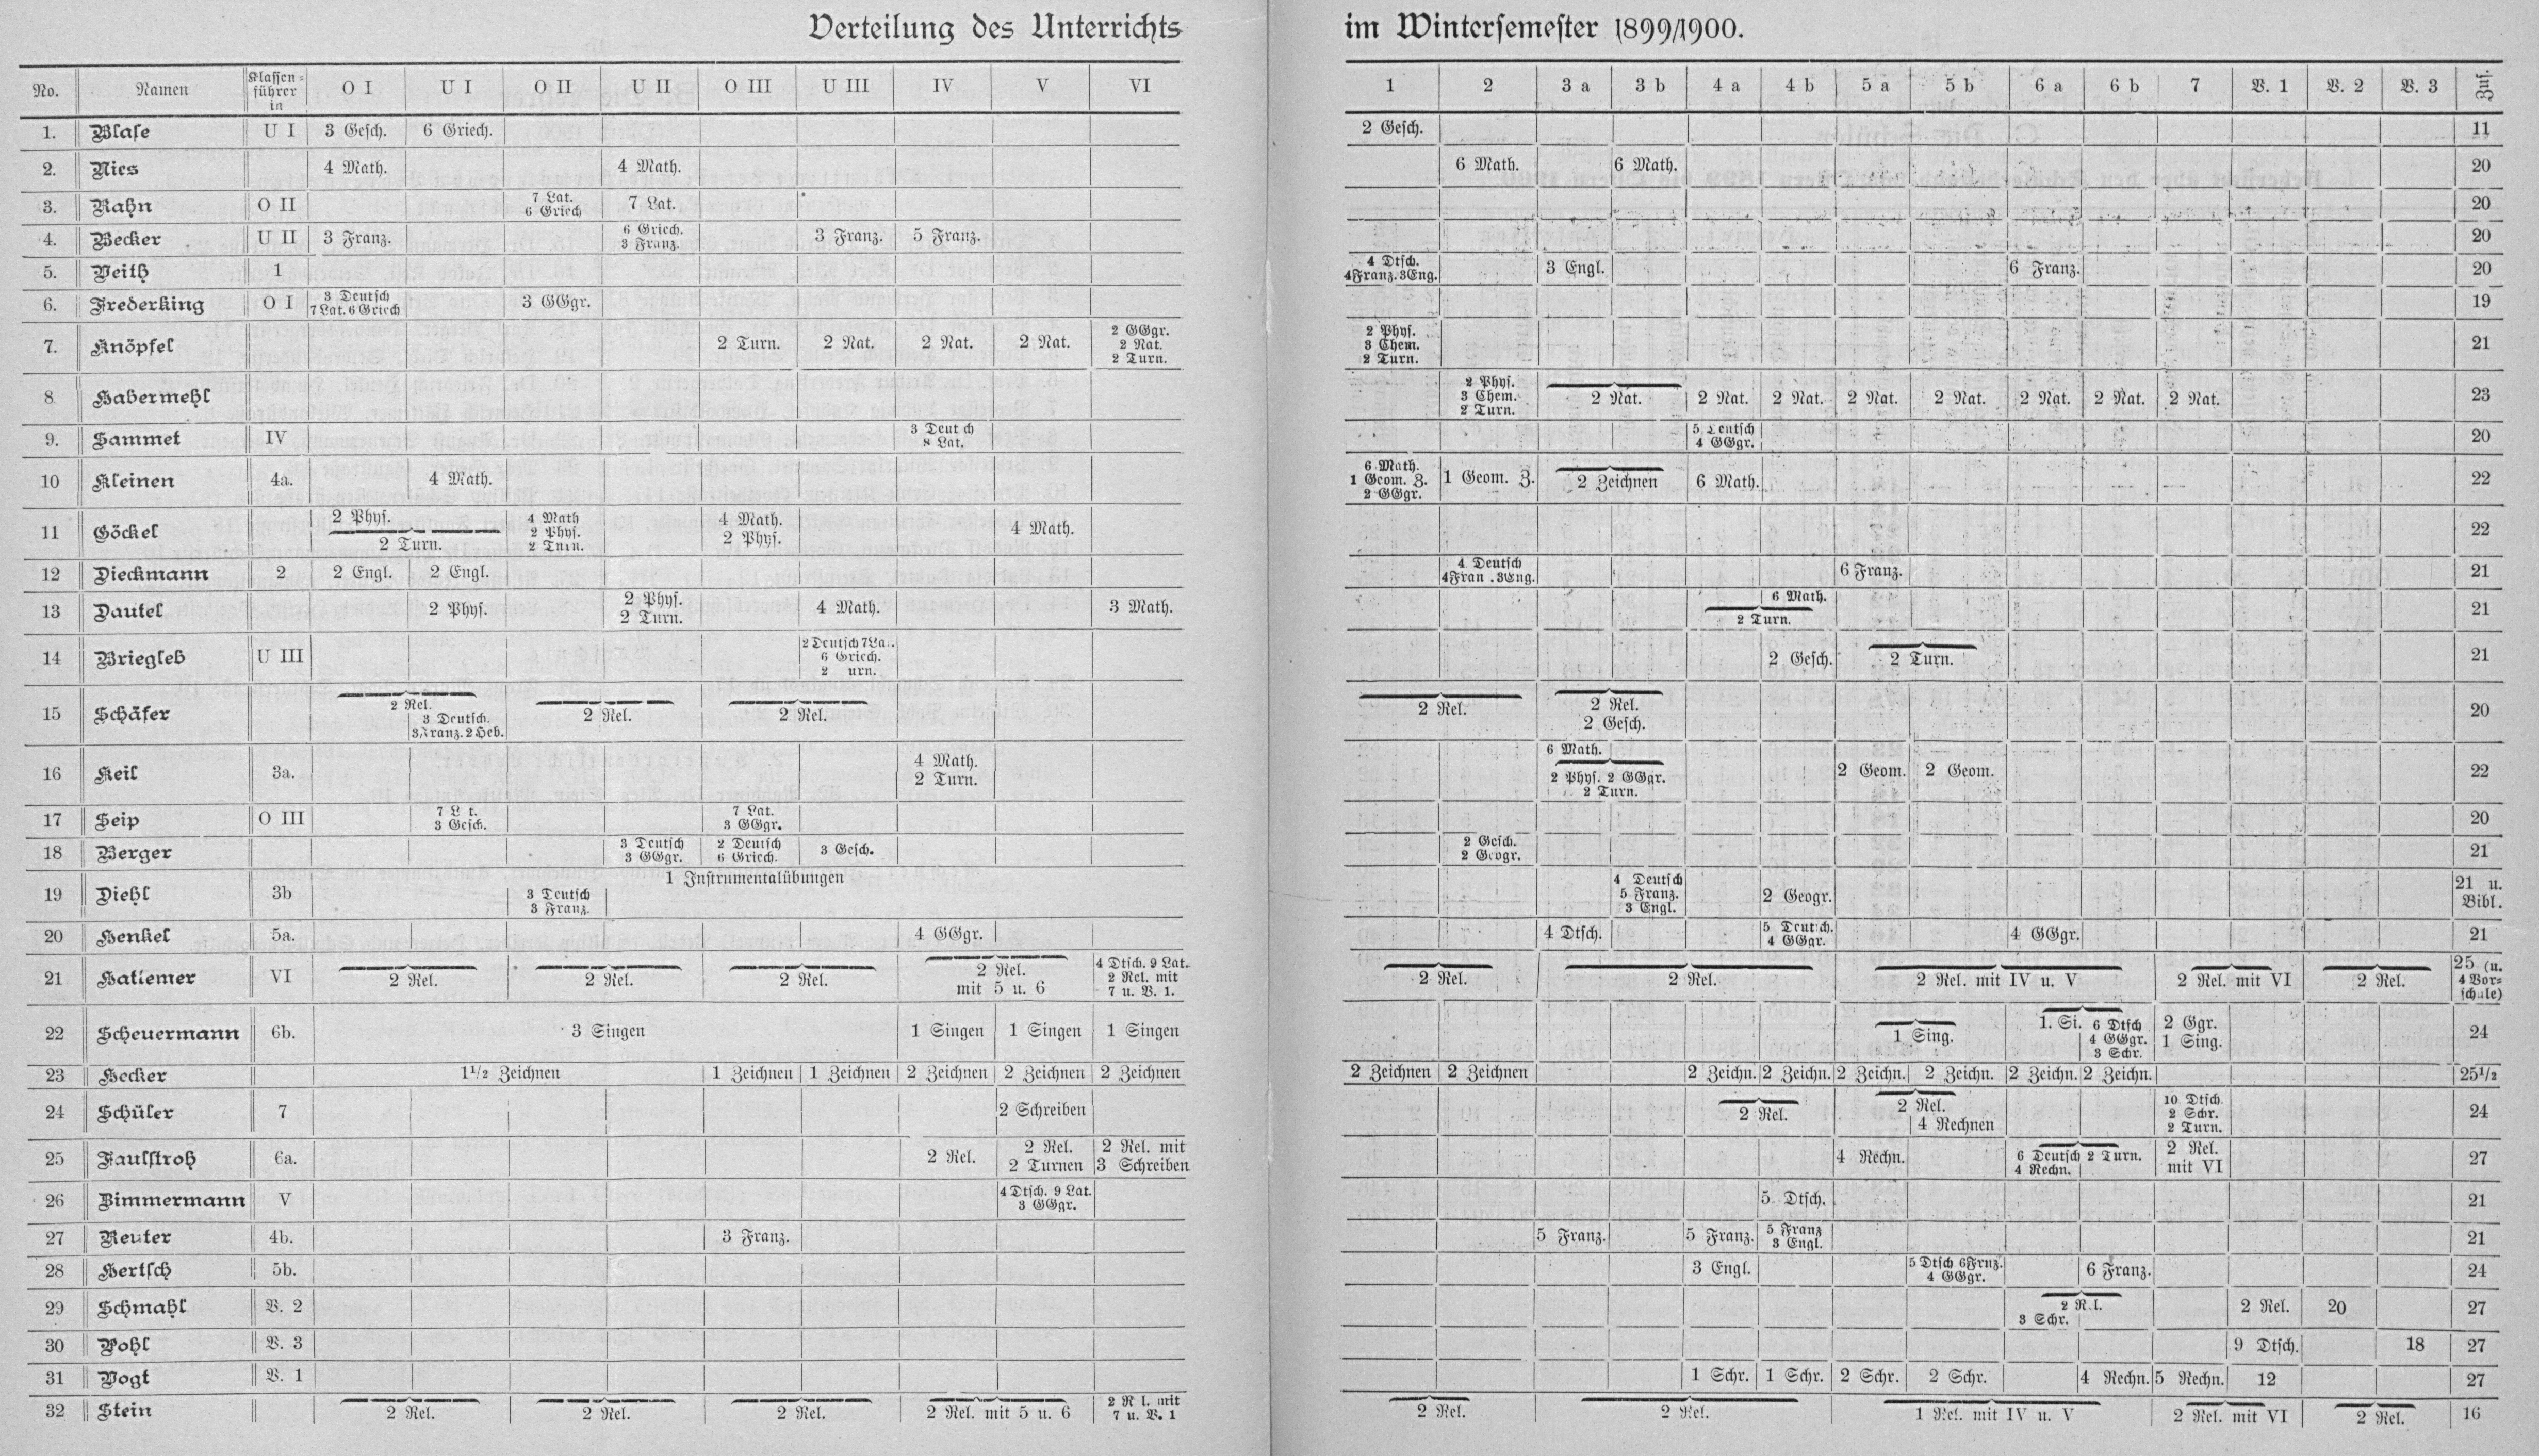 Verteilung des Unterrichts im Wintersemester 1899/1900.
No. Namen Klassen- führer in O I U I O II U II O III U III IV V VI 1 2 3 a 3 b 4 a 4 b 5 a 5 b 6 a 6 b 7 V. 1 V. 2 V. 3 Zus.
1. Blase U I 3 Gesch. 6 Griech. 2 Gesch. 11
2. Nies 4 Math. 4 Math. 6 Math. 6 Math. 20
3. Rahn O II 7 Lat. 7 Lat. 20
6 Griech
4. Becker U II 3 Franz. 6 Griech. 3 Franz. 5 Franz. 20
3 Franz.
5. Veith 1 4 Dtsch. 3 Engl. 6 Franz. 20
4Franz. 3Eng.
6. Frederking O I 3 Deutsch 3 GGgr. 19
7 Lat. 6 Griech
7. Knöpfel 2 Turn. 2 Nat. 2 Nat. 2 Nat. 2 GGgr. 2 Phys. 21
2 Nat. 3 Chem.
2 Turn. 2 Turn.
8 Habermehl 2 Phys. 2 Nat. 2 Nat. 2 Nat. 2 Nat. 2 Nat. 2 Nat. 2 Nat. 2 Nat. 23
3 Chem.
2 Turn.
9. Sammet IV 3 Deut ch 5 eutsch 20
8 Lat. 4 GGgr.
10 Kleinen 4a. 4 Math. 6 Math. 1 Geom. Z. 2 Zeichnen 6 Math. 22
1 Geom. Z.
2 GGgr.
11 Göckel 2 Phys. 4 Math 4 Math. 4 Math. 22
2 Turn. 2 Phys. 2 Phys.
2 Turn.
12 Dieckmann 2 2 Engl. 2 Engl. 4 Deutsch 6 Franz. 21
4Fran . 3Eng.
13 Dautel 2 Phys. 2 Phys. 4 Math. 3 Math. 6 Math. 21
2 Turn. 2 Turn.
14 Briegleb U III 2 Deutsch 7 La . 2 Gesch. 2 Turn. 21
6 Griech.
2 urn.
15 Schäfer 2 Rel. 2 Rel. 2 Rel. 2 Rel. 2 Rel. 20
3 Deutsch. 2 Gesch.
3 ranz. 2 Heb.
16 Keil 3a. 4 Math. 6 Math. 2 Geom. 2 Geom. 22
2 Turn. 2 Phys. 2 GGgr.
2 Turn.
17 Seip O III 7 L t. 7 Lat. 20
3 Gesch. 3 GGgr.
18 Berger 3 Deutsch 2 Deutsch 3 Gesch. 2 Gesch. 21
3 GGgr. 6 Griech. 2 Geogr.
19 Diehl 3b 1 Instrumentalübungen 4 Deutsch 2 Geogr. 21 u.
3 Deutsch 5 Franz. Bibl.
3 Franz. 3 Engl.
20 Henkel 5a. 4 GGgr. 4 Dtsch. 5 Deutsch. 4 GGgr. 21
4 GGgr.
21 Hattemer VI 2 Rel. 2 Rel. 2 Rel. 2 Rel. 4 Dtsch. 9 Lat. 2 Rel. 2 Rel. 2 Rel. mit IV u. V 2 Rel. mit VI 2 Rel. 25 (u.
mit 5 u. 6 2 Rel. mit 4 Vor-
7 u. V. 1. schule)
22 Scheuermann 6b. 3 Singen 1 Singen 1 Singen 1 Singen 1 Sing. 1. Si. 6 Dtsch 2 Ggr. 24
4 GGgr. 1 Sing.
3 Schr.
23 Hecker 1½ Zeichnen 1 Zeichnen 1 Zeichnen 2 Zeichnen 2 Zeichnen 2 Zeichnen 2 Zeichnen 2 Zeichnen 2 Zeichn. 2 Zeichn. 2 Zeichn. 2 Zeichn. 2 Zeichn. 2 Zeichn. 25½
24 Schüler 7 2 Schreiben 2 Rel. 2 Rel. 10 Dtsch. 24
4 Rechnen 2 Schr.
2 Turn.
25 Faulstroh 6a. 2 Rel. 2 Rel. 2 Rel. mit 4 Rechn. 6 Deutsch 2 Turn. 2 Rel. 27
2 Turnen 3 Schreiben 4 Rechn. mit VI
26 Zimmermann V 4 Dtsch. 9 Lat. 5 Dtsch. 21
3 GGgr.
27 Reuter 4b. 3 Franz. 5 Franz. 5 Franz. 5 Franz 21
3 Engl.
28 Hertsch 5b. 3 Engl. 5 Dtsch 6Frnz. 6 Franz. 24
4 GGgr.
29 Schmahl V. 2 2 R l. 2 Rel. 20 27
3 Schr.
30 Pohl V. 3 9 Dtsch. 18 27
31 Vogt V. 1 1 Schr. 1 Schr. 2 Schr. 2 Schr. 4 Rechn. 5 Rechn. 12 27
32 Stein 2 Rel. 2 Rel. 2 Rel. 2 Rel. mit 5 u. 6 2 R l. mit 2 Rel. 2 Rel. 1 Rel. mit IV u. V 2 Rel. mit VI 2 Rel. 16
7 u. V. 1